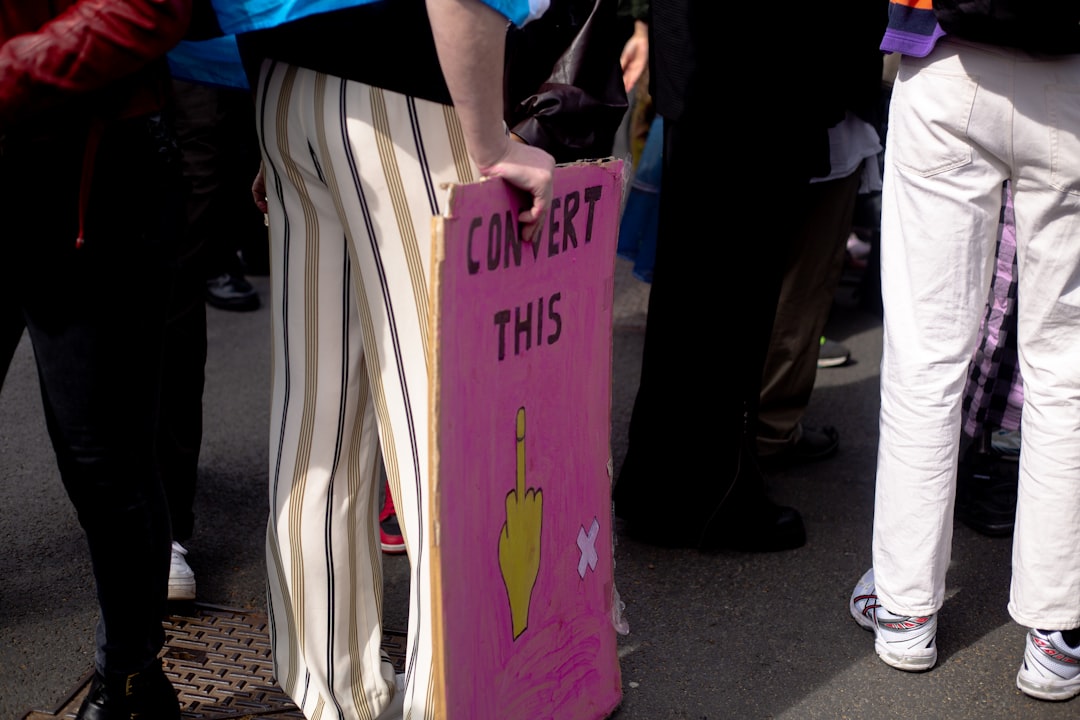 CONVERT
THIS
X